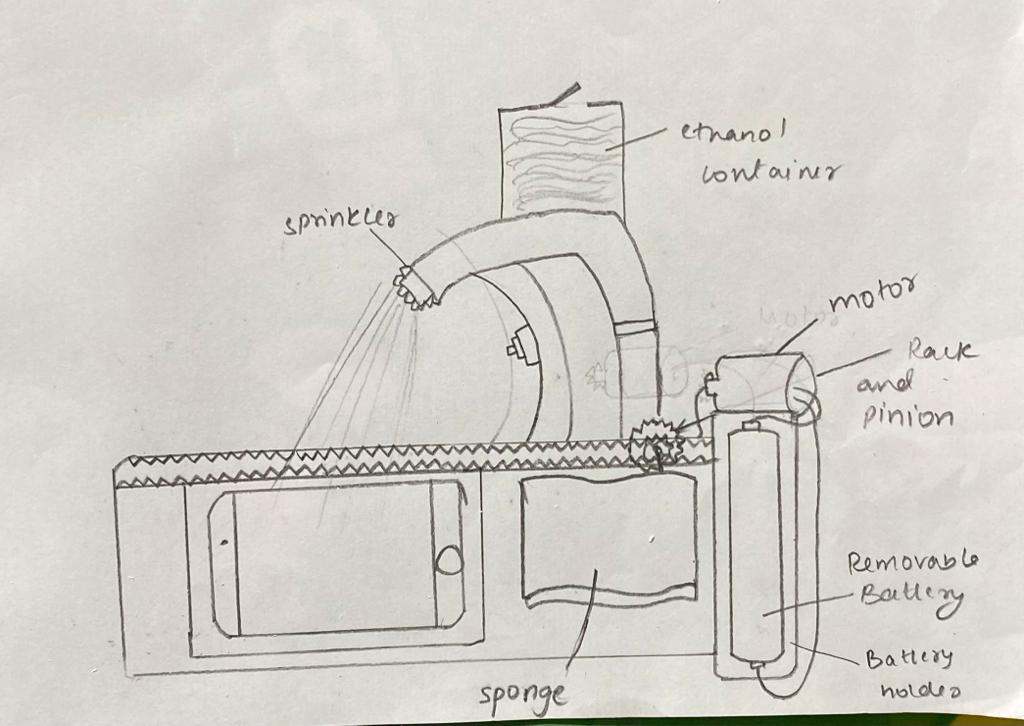 ethanol
container
sprinkler
motor
Rack
and
pinion
Removable
Battery
Battery
holder
sponge